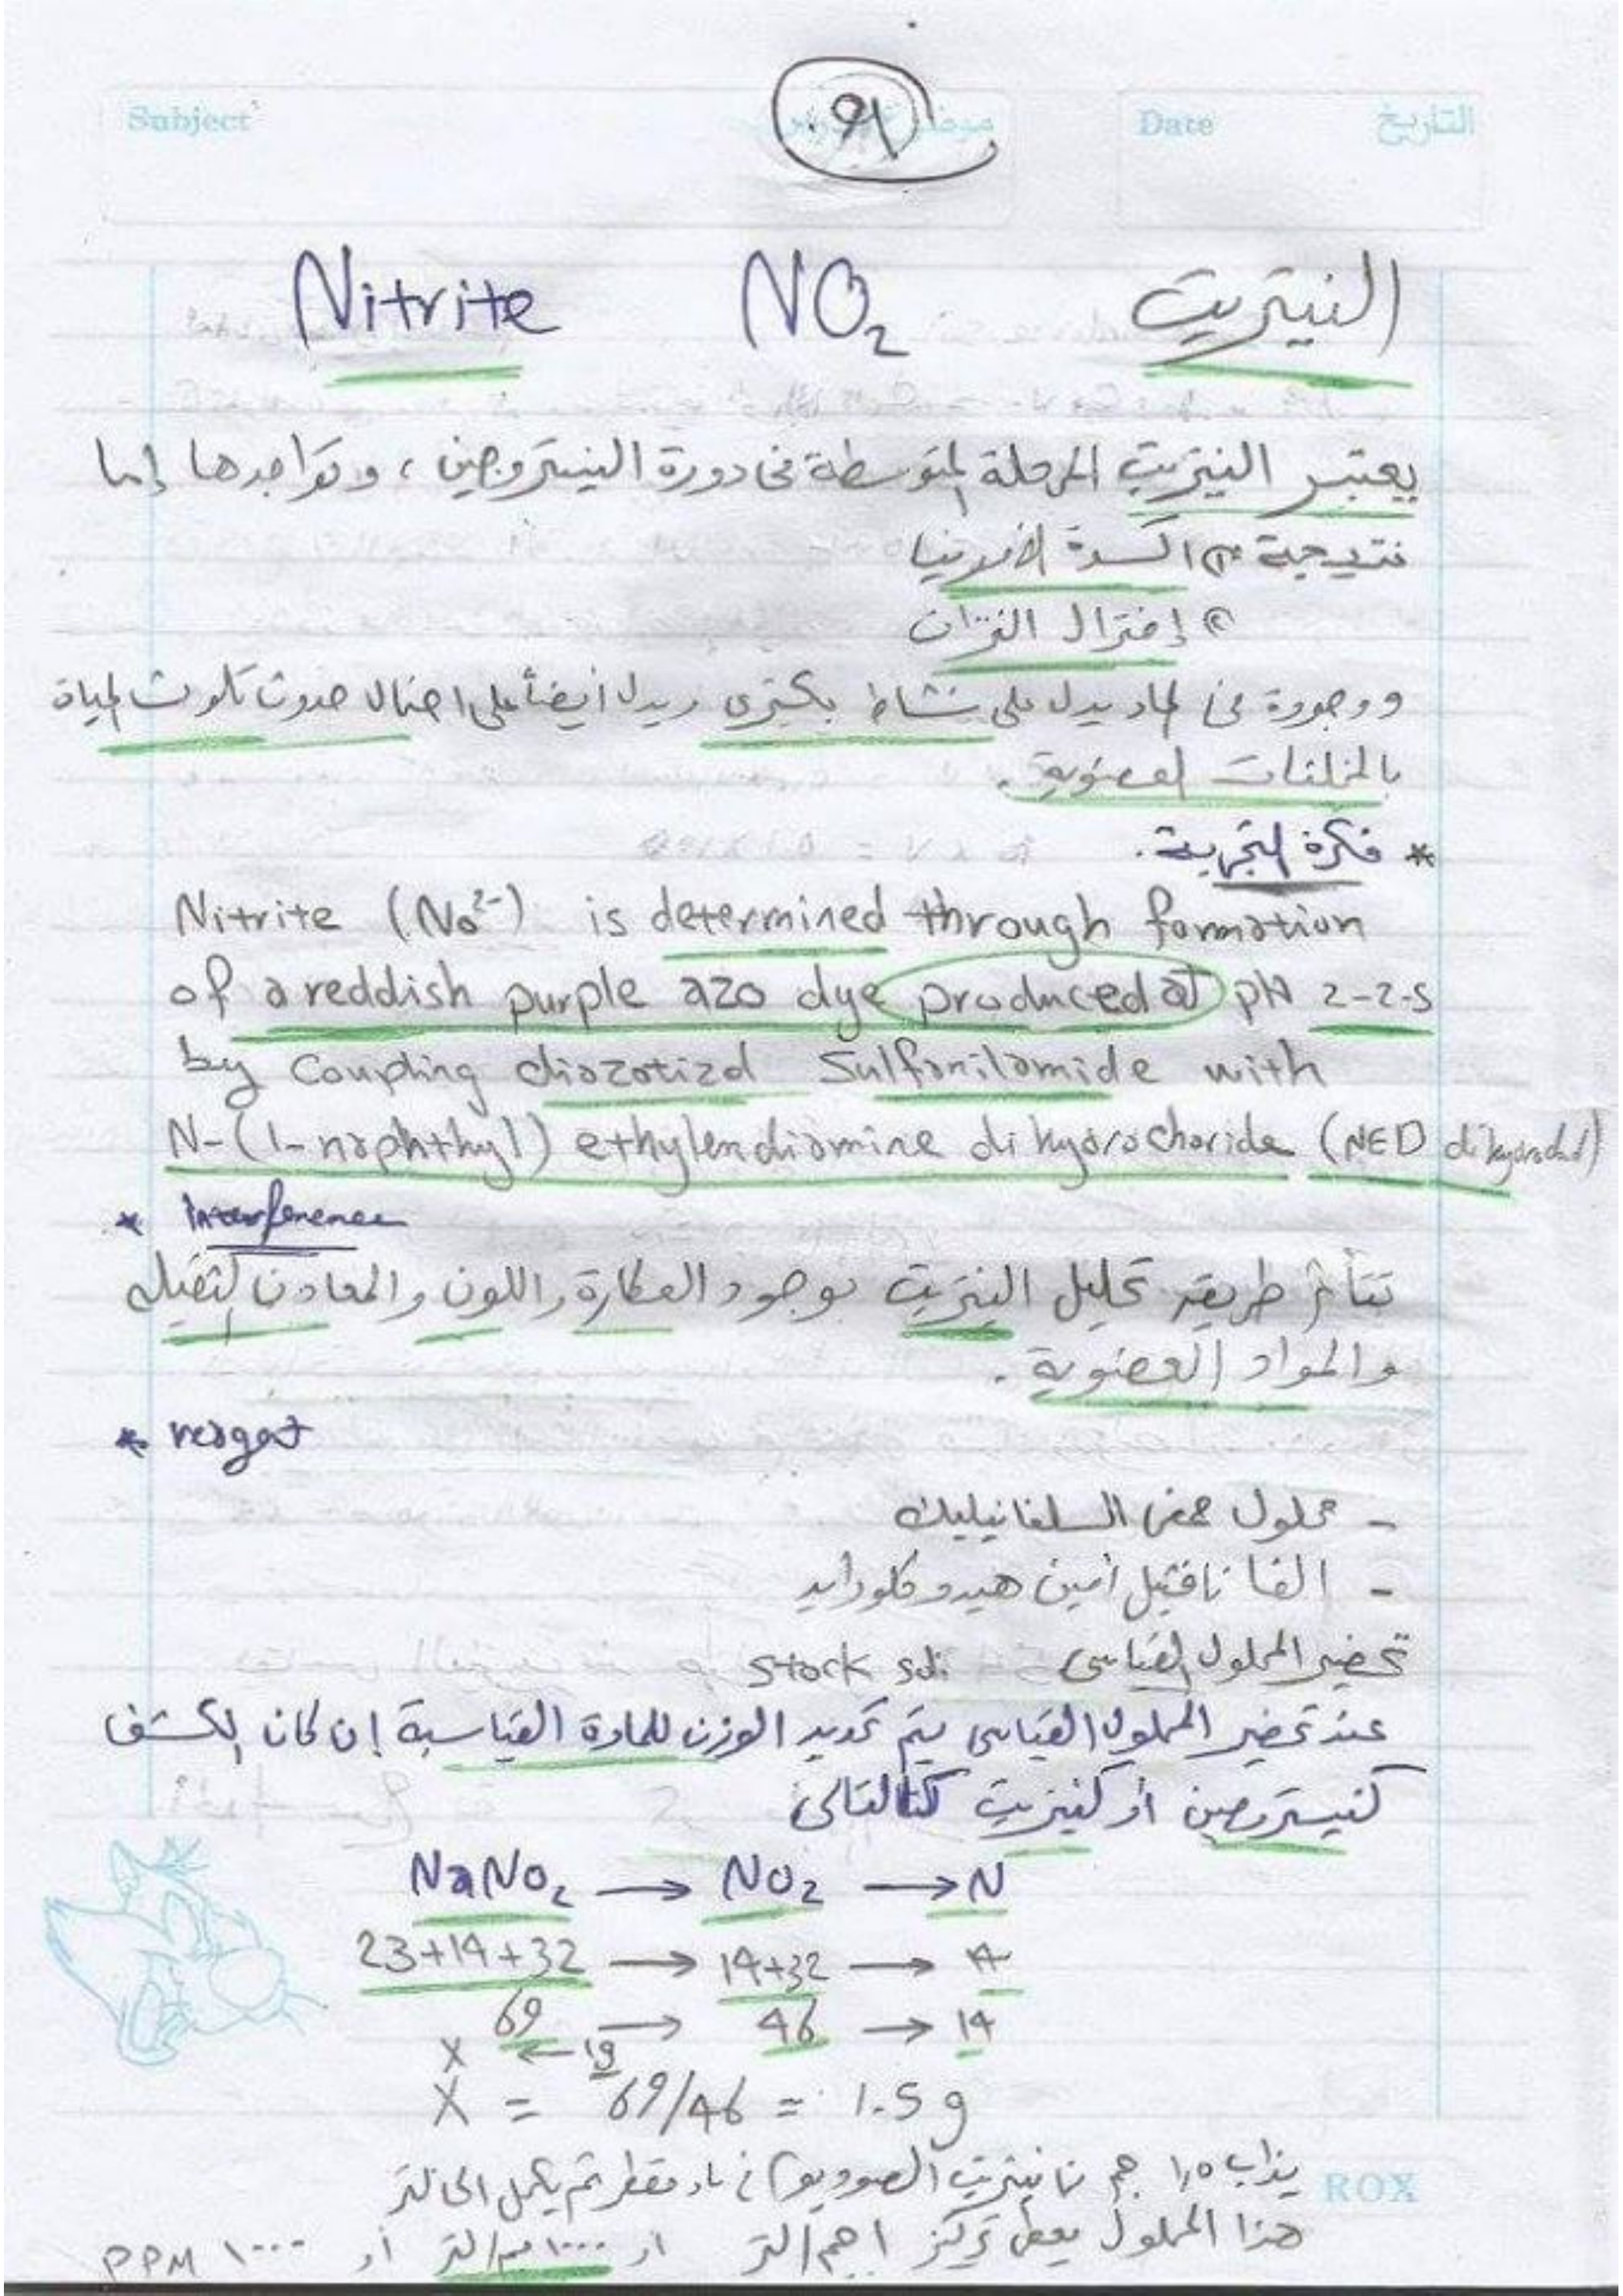 Subject
٩١
Date التاريخ
Nitrite NO₂ النيتريت
يعتبر النيتريت المرحلة المتوسطة فى دورة النيتروجين ، وتواجدها إما
نتيجة ① اكسدة الأمونيا
② إختزال النترات
ووجودة فى الماء يدل على نشاط بكتيرى ويدل أيضاً على احتمال حدوث تلوث المياة
بالمخلفات العضوية .
* فكرة التجربة .
Nitrite (No²⁻) is determined through formation
of a reddish purple azo dye produced at pH 2-2.5
by Coupling diazotizd Sulfanilamide with
N-(1-naphthyl) ethylendiamine dihydrochoride (NED
* Interference
تتأثر طريقة تحليل النيتريت بوجود العكارة واللون والمعادن الثقيله
والمواد العضوية .
* reaget
- محلول حمض السلفانيليك
- الفا نافثيل أمين هيدروكلورايد
تحضير المحلول القياسى stock sol.
عند تحضير المحلول القياسى يتم تحديد الوزن للمادة القياسية إن كان الكشف
كنيتروجين أو كنيتريت كالتالى
NaNo₂ → NO₂ → N
23+14+32 → 14+32 → 14
69 → 46 → 14
X ← 1g
X = 69/46 = 1.5 g
يذاب ١,٥ جم نيتريت الصوديوم فى ماء مقطر ثم يكمل الى لتر
هذا المحلول يعطى تركيز ١ جم/لتر أو ١٠٠٠ مجم/لتر أو ١٠٠٠ PPM
ROX